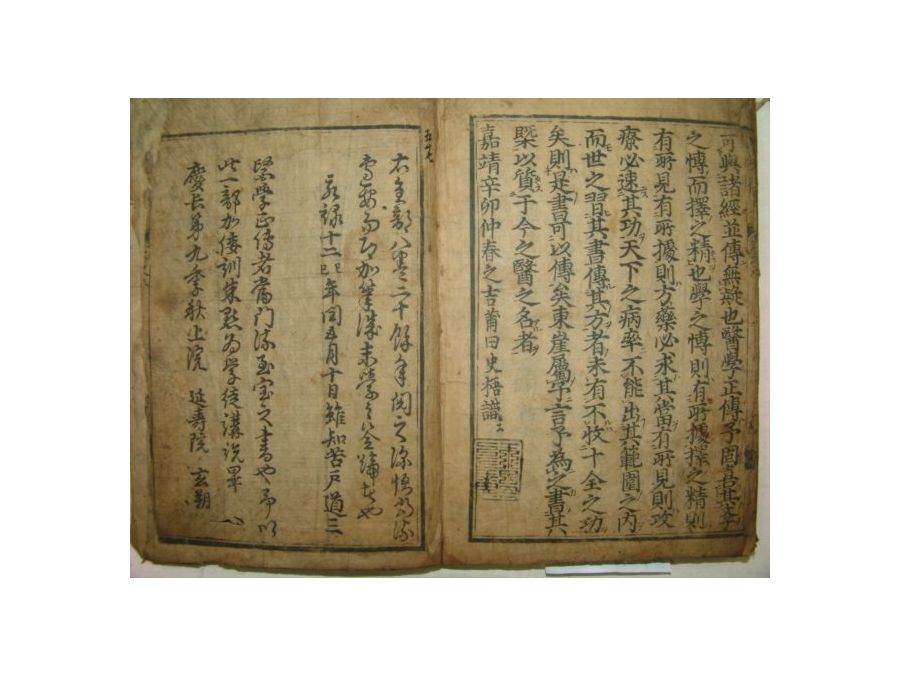 可與諸經並傳無疑也醫學正傳予固喜其學
之博而擇之精也學之博則有所據擇之精則
有所見有所據則方藥必求其當有所見則攻
療必速其功天下之病率不能出其範圍之內
而世之習其書傳其方者未有不收十全之功
矣則是書可以傳矣東崖屬予言予為之書其
槩以質于今之醫之名者
嘉靖辛卯仲春之吉莆田史梧譔
右全部八卷二十餘年閱之深
加筆
永祿十二己巳年閏五月十日雖知苦戸道三
醫學正傳者當門流至寶之書也予以
此一部加倭訓朱點為學徒講說畢
慶長第九季秋上浣 延壽院 玄朔